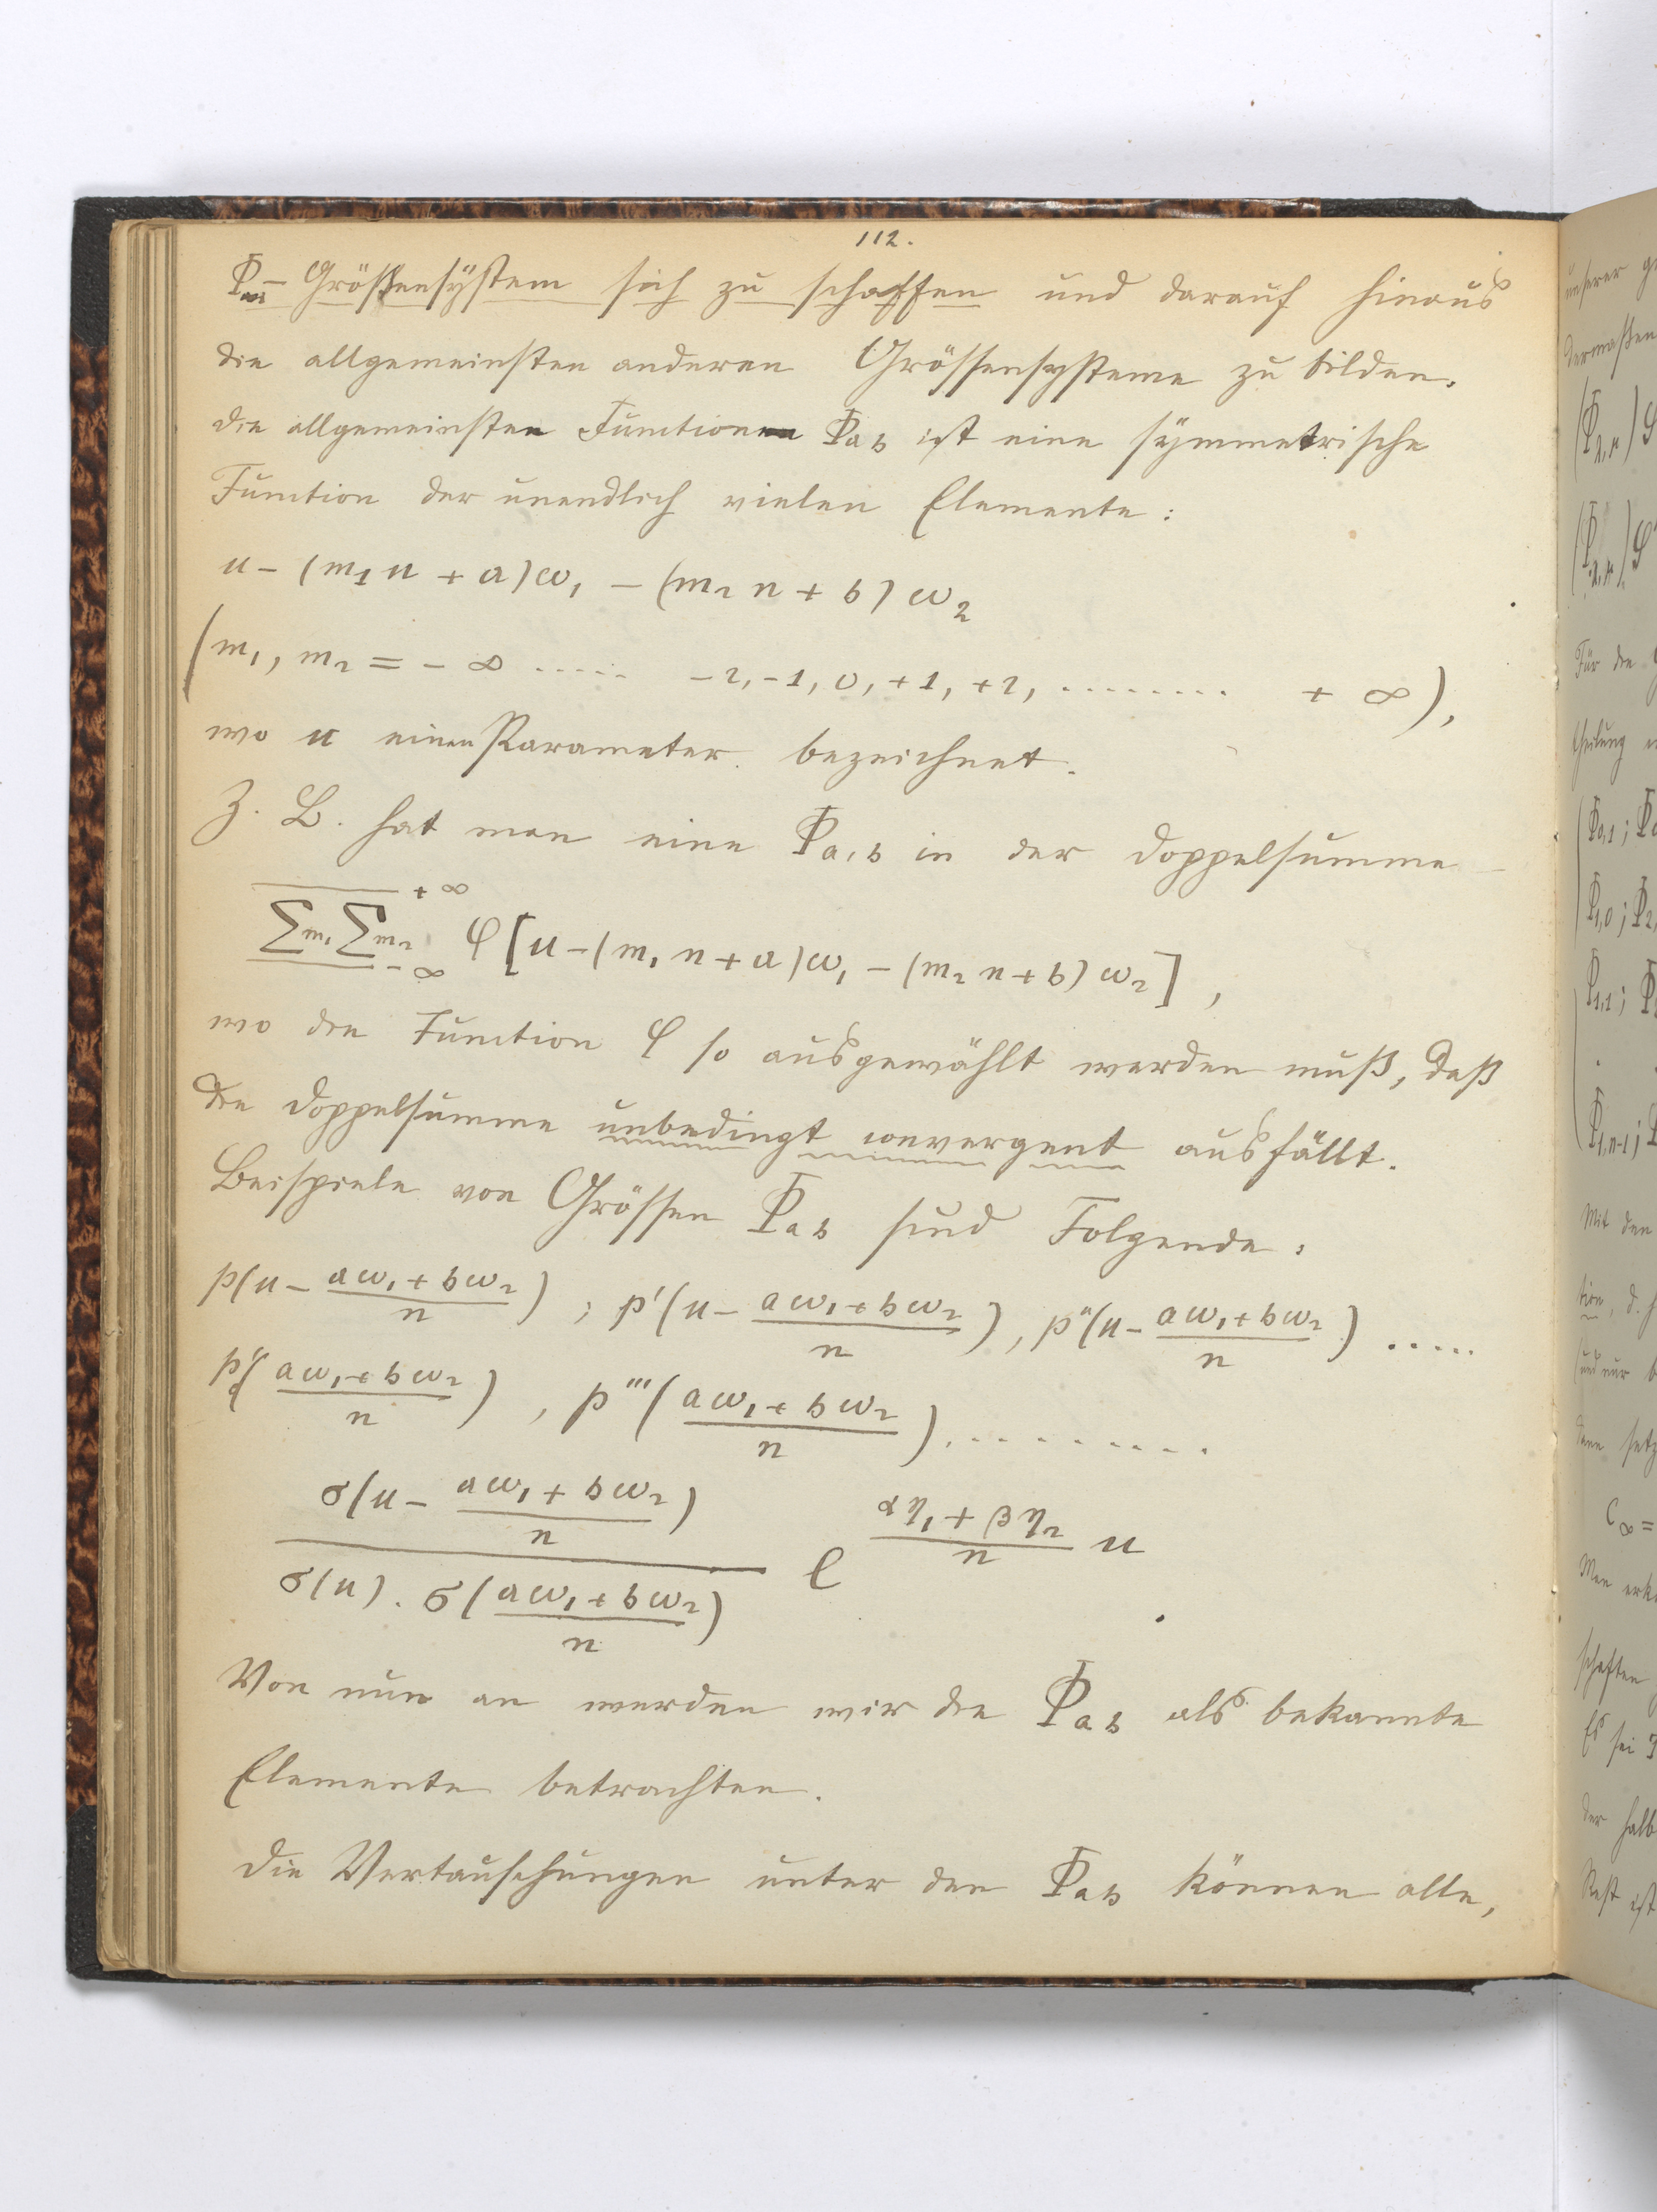 112.
Φ – Größensystem sich zu schaffen und darauf hinaus
die allgemeinsten anderen Grössensysteme zu bilden.
Die allgemeinsten Functionen Φ_ab ist eine symmetrische
Function der unendlich vielen Elemente:
u – (m₁n + a)ω₁ – (m₂n + b)ω₂
(m₁, m₂ = – ∞ ..... –2, –1, 0, +1, +2, ........ + ∞),
wo u einen Parameter bezeichnet.
Z. B. hat man eine Φ_a,b in der Doppelsumme
∑m₁ ∑m₂ +∞ –∞ φ[u – (m₁n + a)ω₁ – (m₂n + b)ω₂],
wo die Function φ so ausgewählt werden muß, daß
die Doppelsumme unbedingt convergent ausfällt.
Beispiele von Grössen Φ_ab sind Folgende:
p(u – (aω₁ + bω₂)/n); p'(u – (aω₁ + bω₂)/n), p''(u – (aω₁ + bω₂)/n) .....
p'((aω₁ + bω₂)/n), p'''((aω₁ + bω₂)/n), ........
σ(u – (aω₁ + bω₂)/n) / σ(u) . σ((aω₁ + bω₂)/n) e^((αη₁ + βη₂)/n u) .
Von nun an werden wir die Φ_ab als bekannte
Elemente betrachten.
Die Vertauschungen unter den Φ_ab können alle,